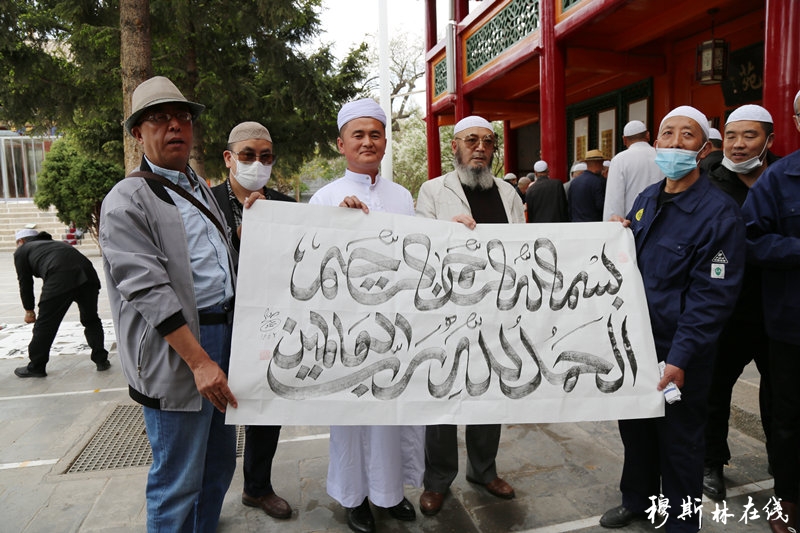 بسم الله الرحمن الرحيم
الحمد لله رب العالمين
苑
穆斯林在线